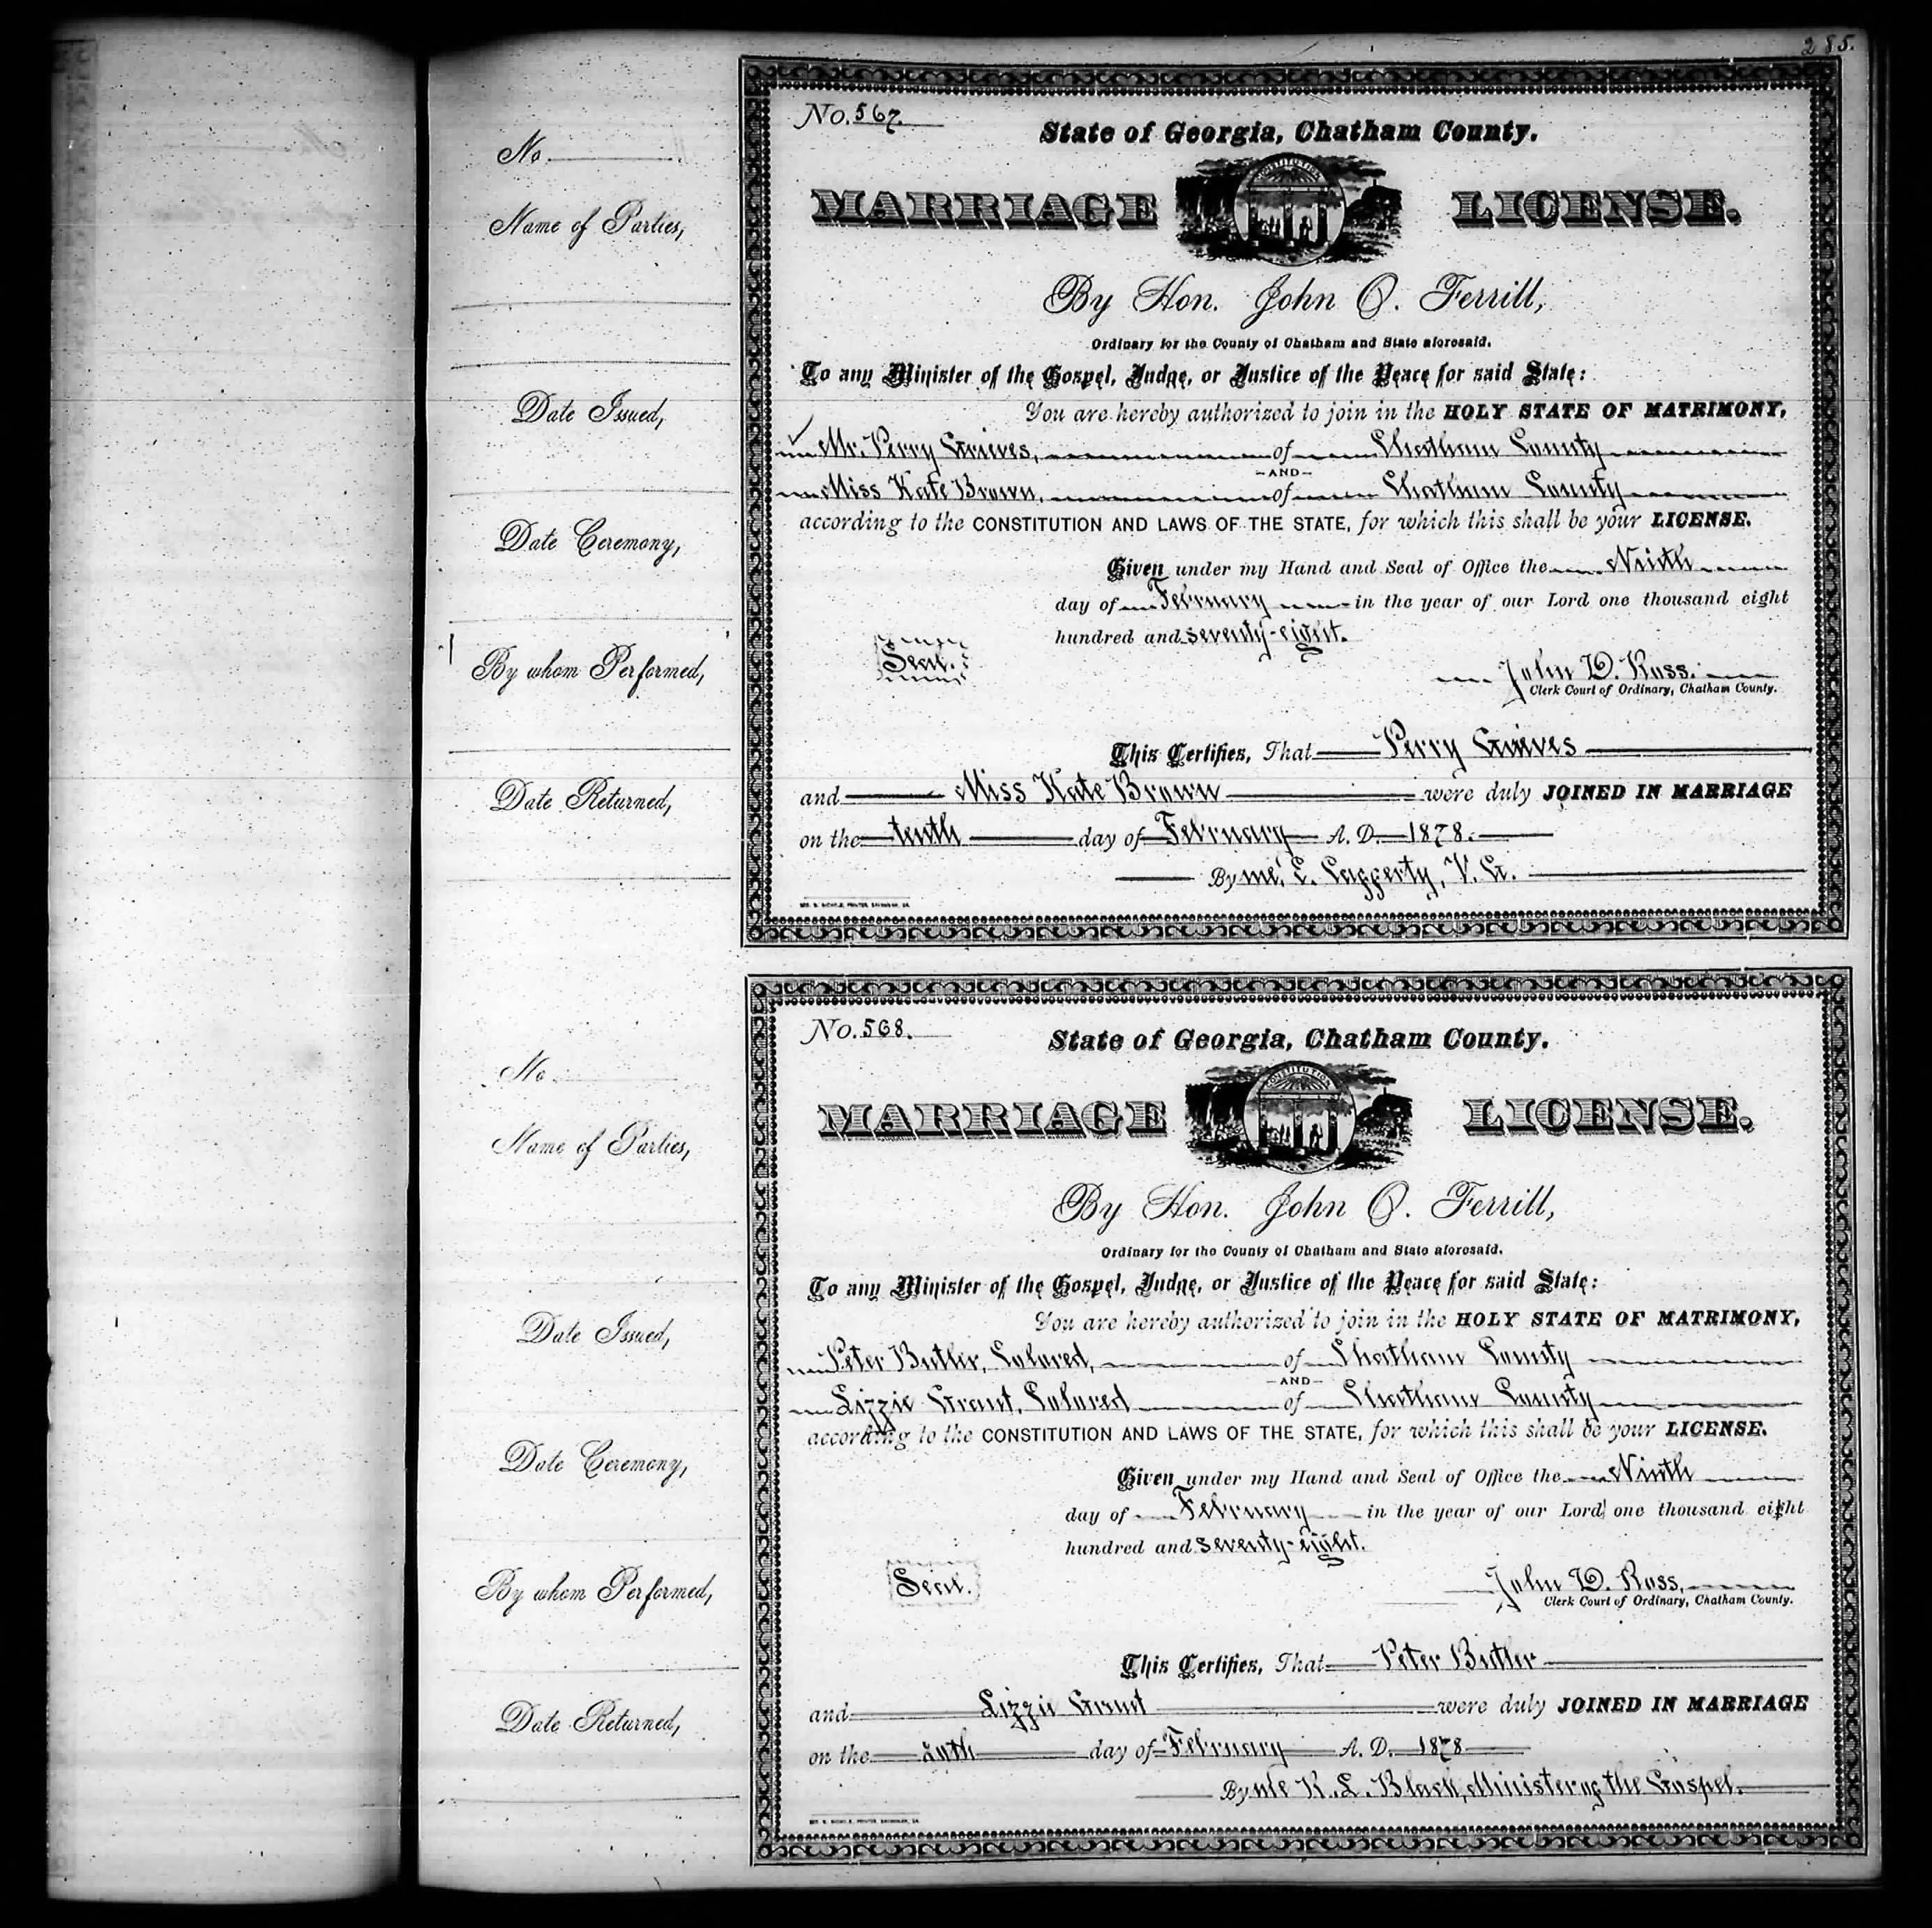 285.
No.
Name of Parties,
Date Issued,
Date Ceremony,
By whom Performed,
Date Returned,
No. 567.
State of Georgia, Chatham County.
CONSTITUTION
MARRIAGE LICENSE.
By Hon. John O. Ferrill,
Ordinary for the County of Chatham and State aforesaid.
To any Minister of the Gospel, Judge, or Justice of the Peace for said State:
You are hereby authorized to join in the HOLY STATE OF MATRIMONY,
Mr. Perry Grieves, of Chatham County
-AND-
Miss Kate Brown, of Chatham County
according to the CONSTITUTION AND LAWS OF THE STATE, for which this shall be your LICENSE.
Given under my Hand and Seal of Office the Ninth
day of February in the year of our Lord one thousand eight
hundred and seventy-eight.
Seal.
John D. Ross.
Clerk Court of Ordinary, Chatham County.
This Certifies, That Perry Grieves
and Miss Kate Brown were duly JOINED IN MARRIAGE
on the tenth day of February A. D. 1878.
By me, C. Cafferty, V. G.
No.
Name of Parties,
Date Issued,
Date Ceremony,
By whom Performed,
Date Returned,
No. 568.
State of Georgia, Chatham County.
CONSTITUTION
MARRIAGE LICENSE.
By Hon. John O. Ferrill,
Ordinary for the County of Chatham and State aforesaid.
To any Minister of the Gospel, Judge, or Justice of the Peace for said State:
You are hereby authorized to join in the HOLY STATE OF MATRIMONY,
Peter Butler, Colored, of Chatham County
-AND-
Lizzie Grant, Colored of Chatham County
according to the CONSTITUTION AND LAWS OF THE STATE, for which this shall be your LICENSE.
Given under my Hand and Seal of Office the Ninth
day of February in the year of our Lord one thousand eight
hundred and seventy-eight.
Seal.
John D. Ross,
Clerk Court of Ordinary, Chatham County.
This Certifies, That Peter Butler
and Lizzie Grant were duly JOINED IN MARRIAGE
on the day of February A. D. 1878
By me K. L. Black, Minister of the Gospel.